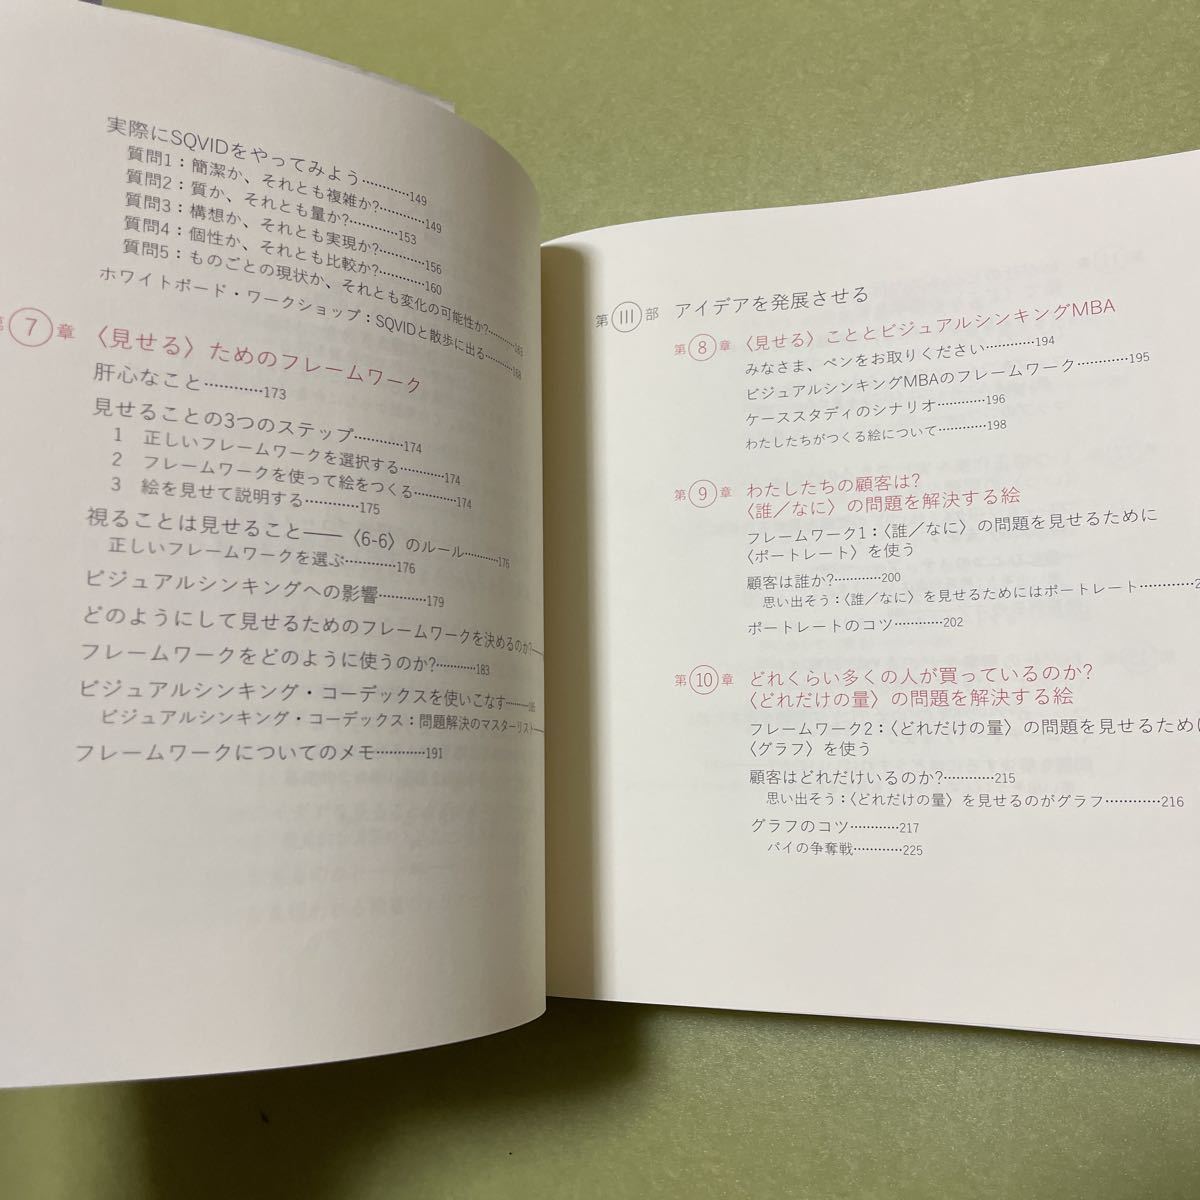 実際にSQVIDをやってみよう…………149
質問1：簡潔か、それとも複雑か?…………149
質問2：質か、それとも量か?…………153
質問3：構想か、それとも実現か?…………156
質問4：個性か、それとも比較か?…………160
質問5：ものごとの現状か、それとも変化の可能性か?…………163
ホワイトボード・ワークショップ：SQVIDと散歩に出る…………168
第7章 〈見せる〉ためのフレームワーク
肝心なこと…………173
見せることの3つのステップ…………174
1 正しいフレームワークを選択する…………174
2 フレームワークを使って絵をつくる…………174
3 絵を見せて説明する…………175
視ることは見せること——〈6-6〉のルール…………176
正しいフレームワークを選ぶ…………176
ビジュアルシンキングへの影響…………179
どのようにして見せるためのフレームワークを決めるのか?
フレームワークをどのように使うのか?…………183
ビジュアルシンキング・コーデックスを使いこなす…………
ビジュアルシンキング・コーデックス：問題解決のマスターリスト
フレームワークについてのメモ…………191
第III部 アイデアを発展させる
第8章 〈見せる〉こととビジュアルシンキングMBA
みなさま、ペンをお取りください…………194
ビジュアルシンキングMBAのフレームワーク…………195
ケーススタディのシナリオ…………196
わたしたちがつくる絵について…………198
第9章 わたしたちの顧客は?
〈誰／なに〉の問題を解決する絵
フレームワーク1：〈誰／なに〉の問題を見せるために
〈ポートレート〉を使う
顧客は誰か?…………200
思い出そう：〈誰／なに〉を見せるためにはポートレート…………
ポートレートのコツ…………202
第10章 どれくらい多くの人が買っているのか?
〈どれだけの量〉の問題を解決する絵
フレームワーク2：〈どれだけの量〉の問題を見せるために
〈グラフ〉を使う
顧客はどれだけいるのか?…………215
思い出そう：〈どれだけの量〉を見せるのがグラフ…………216
グラフのコツ…………217
パイの争奪戦…………225